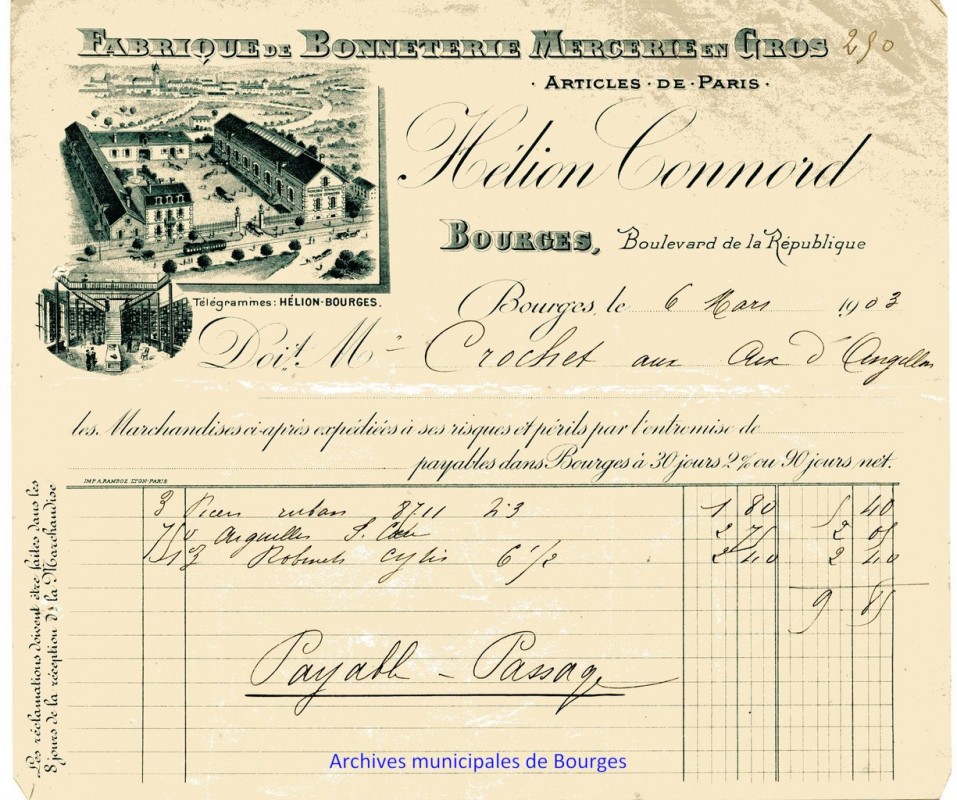 FABRIQUE DE BONNETERIE MERCERIE EN GROS 250
· ARTICLES · DE · PARIS ·
Hélion Connord
BOURGES, Boulevard de la République
Télégrammes: HÉLION-BOURGES.
Bourges, le 6 Mars 1903
Doit Mr Crochet aux Aix d'Angillon
les Marchandises ci-après expédiées à ses risques et périls par l'entremise de
payables dans Bourges à 30 jours 2% ou 90 jours net.
IMP. A. RAMBOZ LYON-PARIS
Les réclamations doivent être faites dans les
8 jours de la réception de la Marchandise
3 Pièces ruban 8711 23 1 80 5 40
Aiguilles 2 75 2 05
6 1/2 2 40 2 40
9 85
Payable - Passage
Archives municipales de Bourges